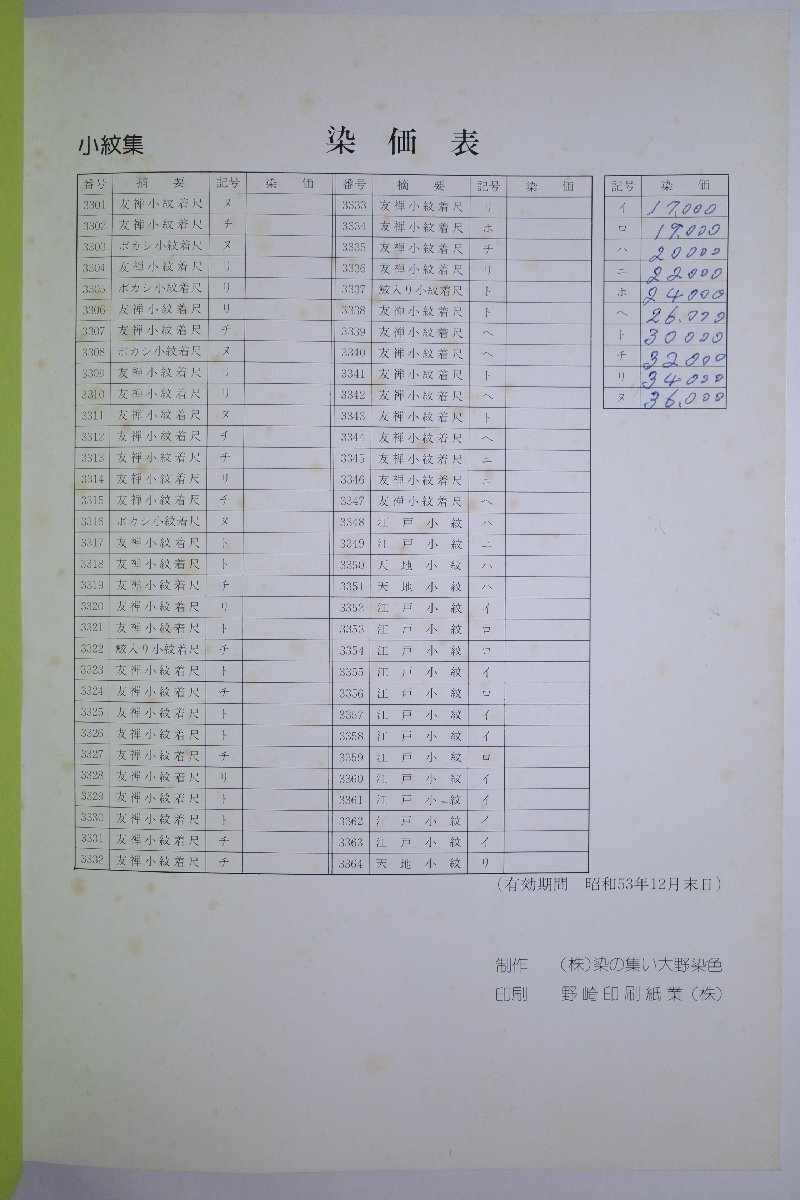 小紋集 染価表
番号 摘要 記号 染価 番号 摘要 記号 染価 記号 染価
3301 友禅小紋着尺 ヌ 3333 友禅小紋着尺 リ イ 17,000
3302 友禅小紋着尺 チ 3334 友禅小紋着尺 ホ ロ 19,000
3303 ボカシ小紋着尺 ヌ 3335 友禅小紋着尺 チ ハ 20000
3304 友禅小紋着尺 リ 3336 友禅小紋着尺 リ ニ 22000
3305 ボカシ小紋着尺 リ 3337 絞入り小紋着尺 ト ホ 24000
3306 友禅小紋着尺 リ 3338 友禅小紋着尺 ト ヘ 26.000
3307 友禅小紋着尺 チ 3339 友禅小紋着尺 ヘ ト 30000
3308 ボカシ小紋着尺 ヌ 3340 友禅小紋着尺 ヘ チ 32000
3309 友禅小紋着尺 リ 3341 友禅小紋着尺 ト リ 34000
3310 友禅小紋着尺 リ 3342 友禅小紋着尺 ヘ ヌ 36.000
3311 友禅小紋着尺 ヌ 3343 友禅小紋着尺 ト
3312 友禅小紋着尺 チ 3344 友禅小紋着尺 ヘ
3313 友禅小紋着尺 チ 3345 友禅小紋着尺 ニ
3314 友禅小紋着尺 リ 3346 友禅小紋着尺 ニ
3315 友禅小紋着尺 チ 3347 友禅小紋着尺 ヘ
3316 ボカシ小紋着尺 ヌ 3348 江戸小紋 ハ
3317 友禅小紋着尺 ト 3349 江戸小紋 ニ
3318 友禅小紋着尺 ト 3350 天地小紋 ハ
3319 友禅小紋着尺 チ 3351 天地小紋 ハ
3320 友禅小紋着尺 リ 3352 江戸小紋 イ
3321 友禅小紋着尺 ト 3353 江戸小紋 ロ
3322 絞入り小紋着尺 チ 3354 江戸小紋 ロ
3323 友禅小紋着尺 ト 3355 江戸小紋 イ
3324 友禅小紋着尺 チ 3356 江戸小紋 ロ
3325 友禅小紋着尺 ト 3357 江戸小紋 イ
3326 友禅小紋着尺 ト 3358 江戸小紋 イ
3327 友禅小紋着尺 チ 3359 江戸小紋 ロ
3328 友禅小紋着尺 リ 3360 江戸小紋 イ
3329 友禅小紋着尺 ト 3361 江戸小紋 イ
3330 友禅小紋着尺 ト 3362 江戸小紋 イ
3331 友禅小紋着尺 チ 3363 江戸小紋 イ
3332 友禅小紋着尺 チ 3364 天地小紋 リ
(有効期間 昭和53年12月末日)
制作 (株)染の集い大野染色
印刷 野崎印刷紙業(株)